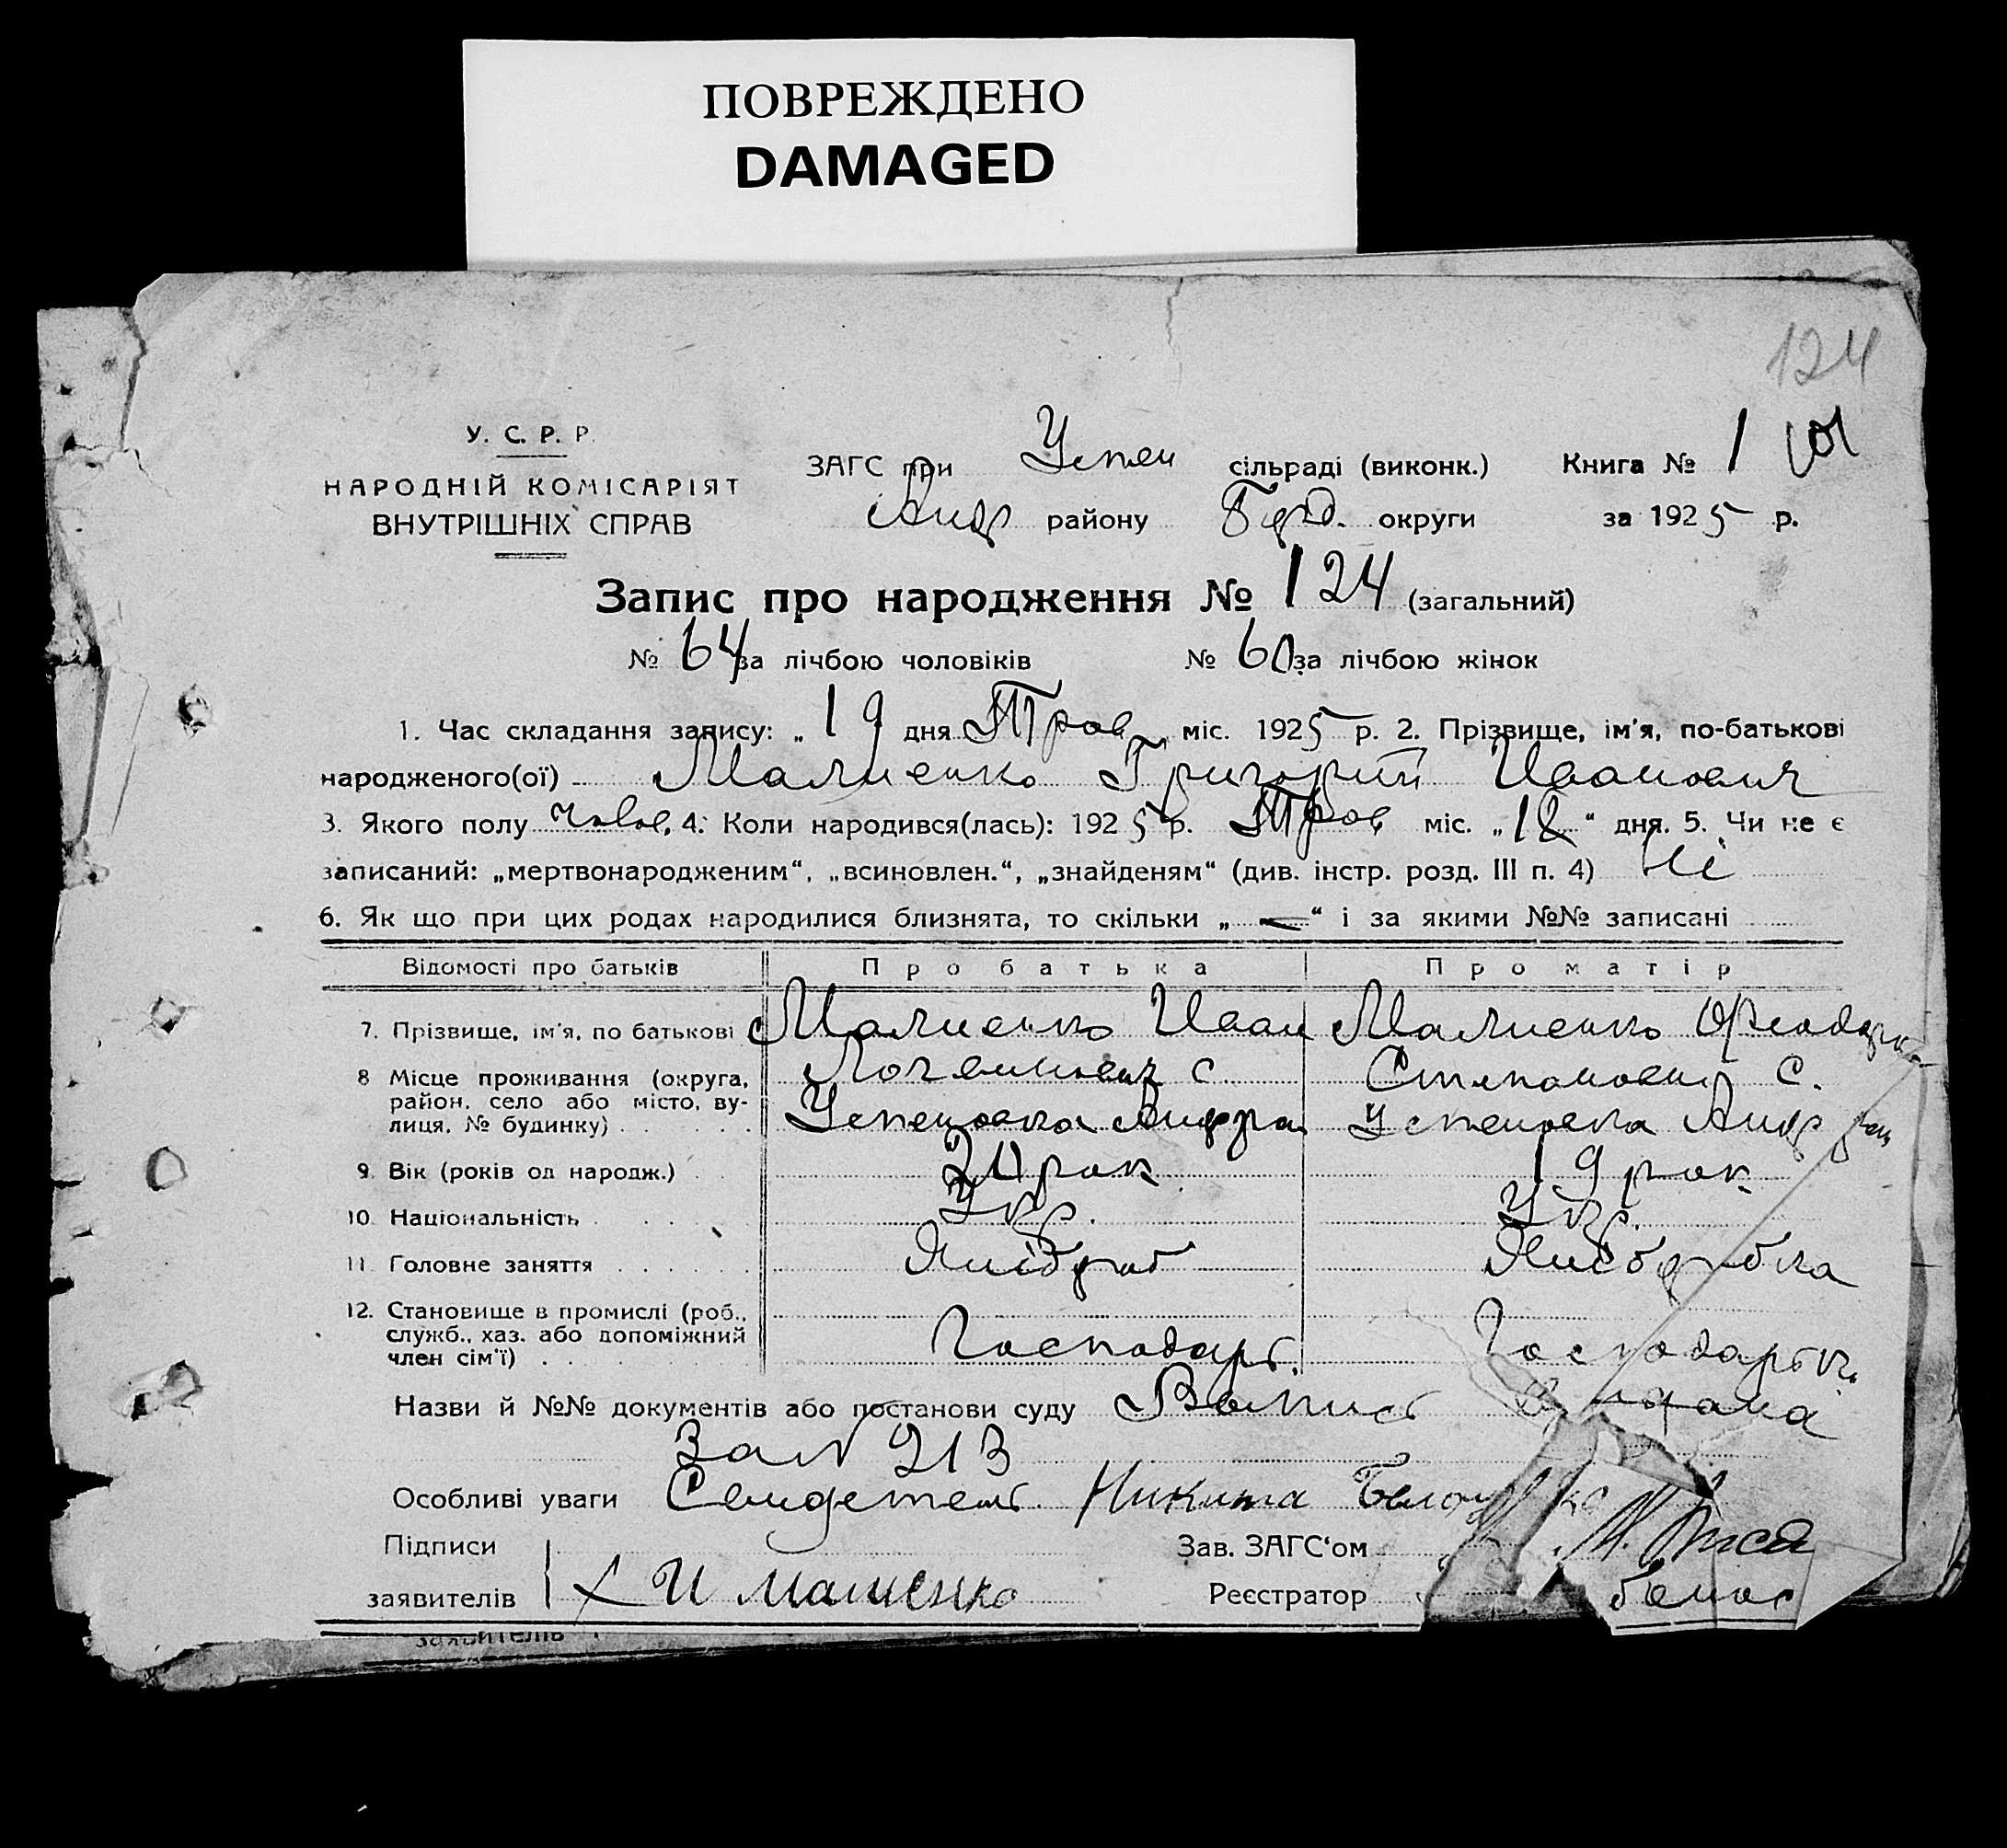 ПОВРЕЖДЕНО
DAMAGED
124
У. С. Р. Р.
НАРОДНІЙ КОМІСАРІЯТ
ВНУТРІШНІХ СПРАВ
ЗАГС при Успен сільраді (виконк.) Книга № 1
Андр району Берд. округи за 1925 р.
Запис про народження № 124 (загальний)
№ 64 за лічбою чоловіків № 60 за лічбою жінок
1. Час складання запису: „19 дня Трав міс. 1925 р. 2. Прізвище, ім'я, по-батькові
народженого(ої) Малиенко Григорий Иванович
3. Якого полу чолов. 4. Коли народився(лась): 1925 р. Трав міс. „18“ дня. 5. Чи не є
записаний: „мертвонародженим“, „всиновлен.“, „знайденям“ (див. інстр. розд. III п. 4) Ні
6. Як що при цих родах народилися близнята, то скільки „ — “ і за якими №№ записані
Відомості про батьків Про батька Про матір
7. Прізвище, ім'я, по батькові Малиенко Иван Малиенко
8 Місце проживання (округа, с. Степановна с.
район, село або місто, ву- Успеновка Андр ра Успеновка Андр
лиця, № будинку)
9. Вік (років од народж.) 20 рок 19 рок.
10. Національність Укр. Укр.
11. Головне заняття Хлібороб Хліборобка
12. Становище в промислі (роб., Господарь. Господарька
служб., хаз. або допоміжний
член сім'ї)
Назви й №№ документів або постанови суду
За № 213
Особливі уваги Свидетель Никита
Підписи Зав. ЗАГС'ом
заявителів И Малиенко Реєстратор
заявителів